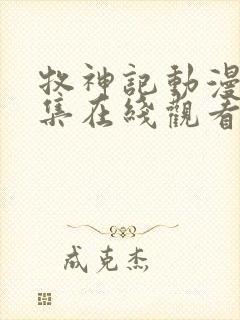 牧神記動漫
集在綫觀看
成克杰